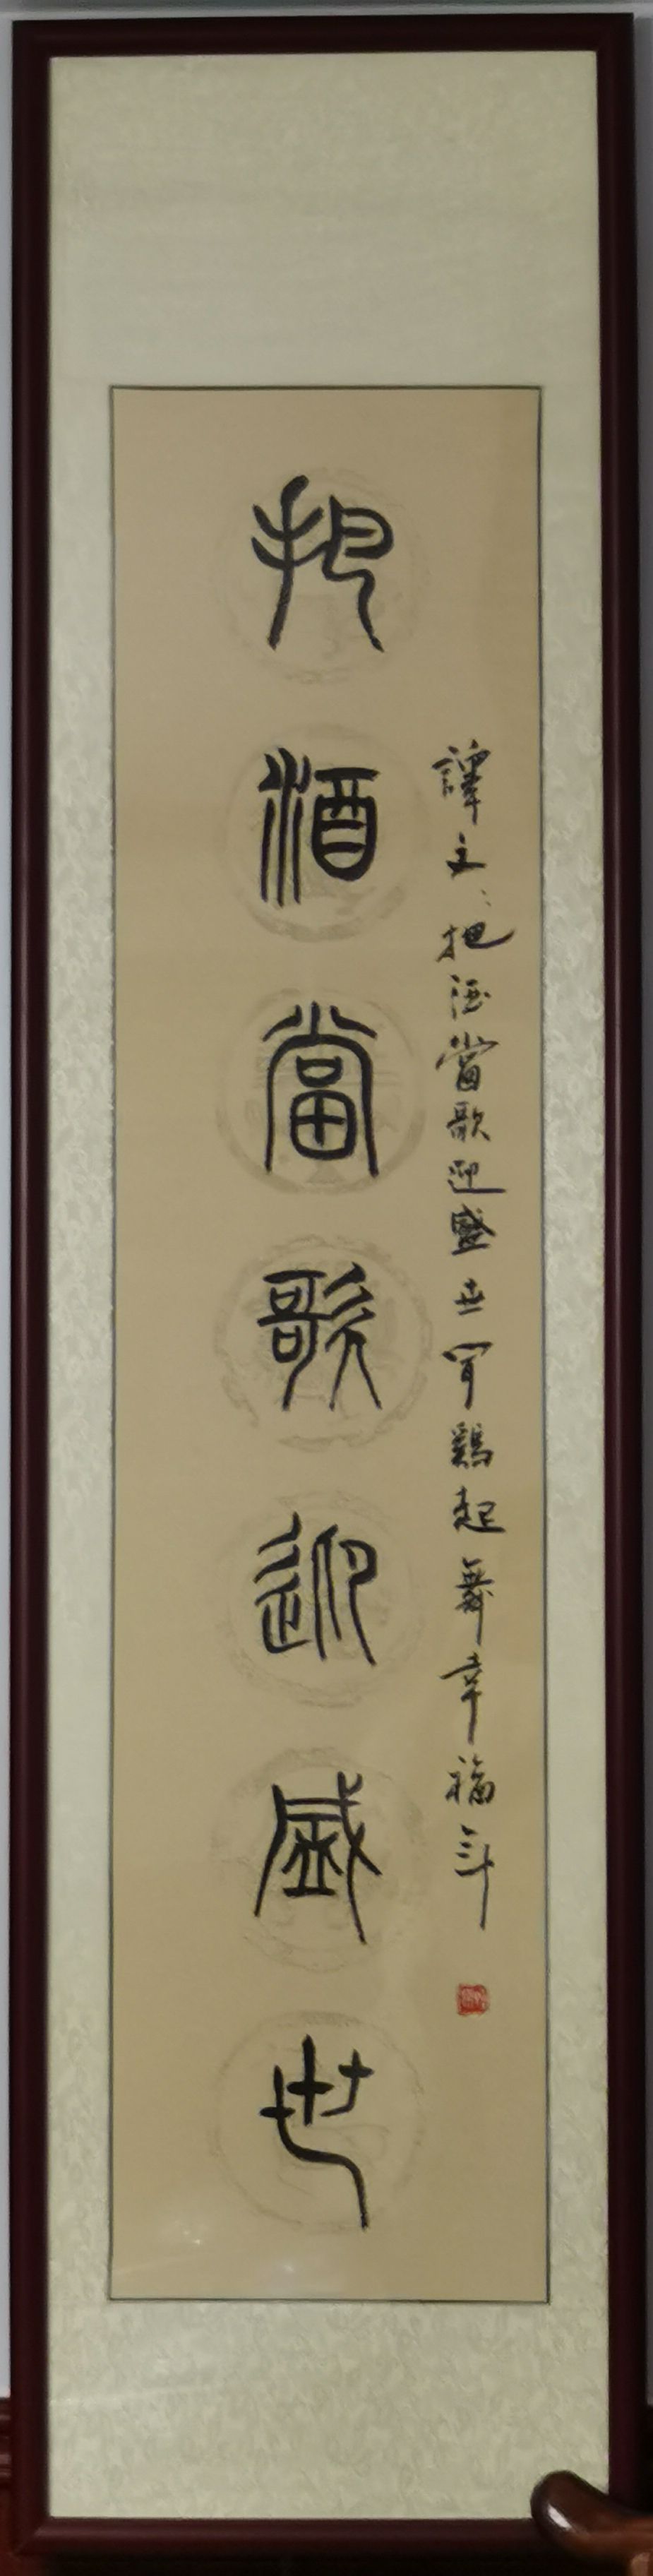 譯文：把酒當歌迎盛世聞鷄起舞幸福年
把酒當歌迎盛世